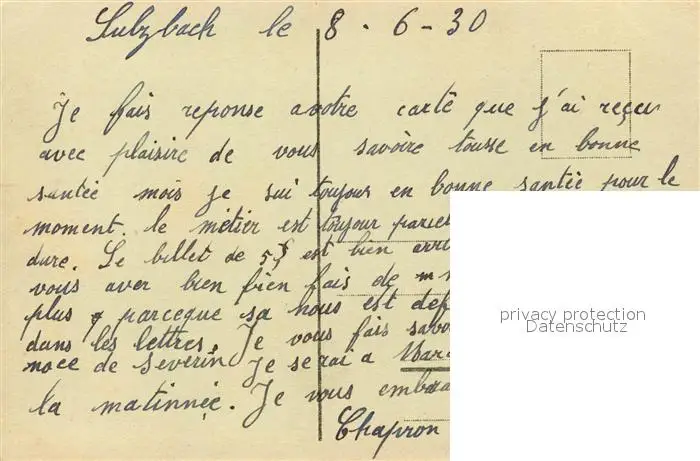 Sulzbach le 8-6-30
Je fais reponse avotre carte que j'ai reçu
avec plaisire de vous savoire tousse en bonne
santée mois je sui toujour en bonne santée pour le
moment. le métier est toujour
dure. Le billet de 5f est bien
vous aver bien fien fais de
plus parceque sa nous est
dans les lettres. Je vous fais
noce de Severin Je serai a
la matinnée. Je vous
Chapron
privacy protection
Datenschutz